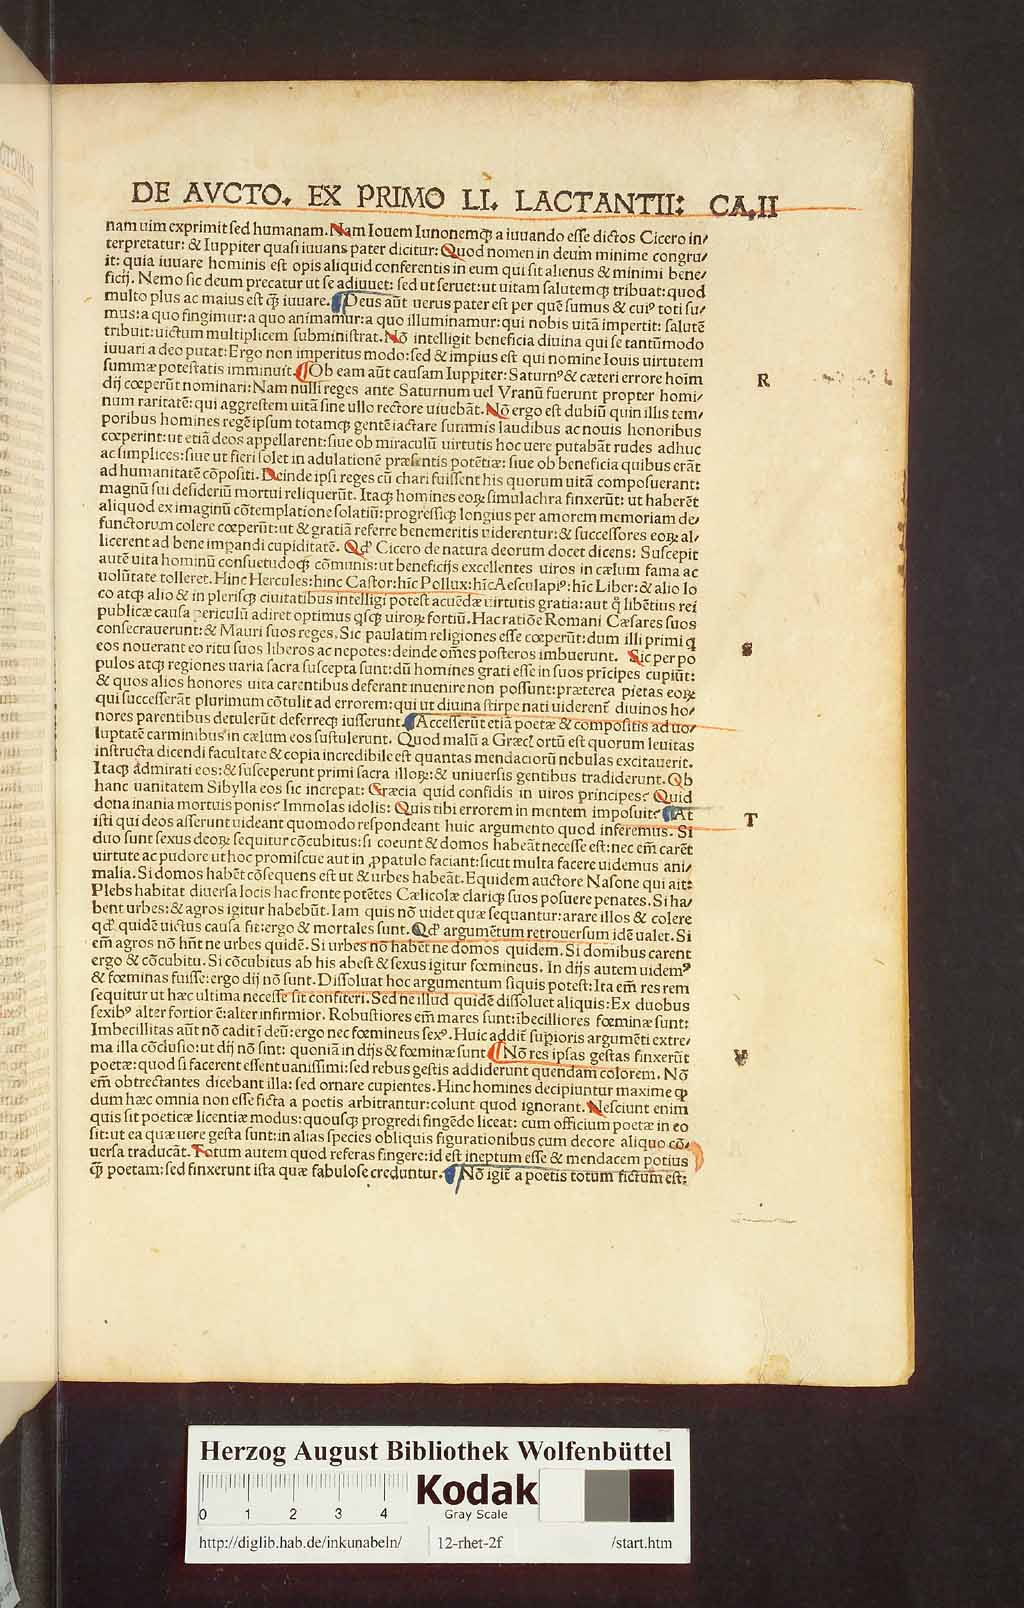 DE AVCTO. EX PRIMO LI. LACTANTII: CA.II
nam uim exprimit sed humanam. Nam Iouem Iunonemq̃ a iuuando esse dictos Cicero in/
terpretatur: & Iuppiter quasi iuuans pater dicitur: Quod nomen in deum minime congru/
it: quia iuuare hominis est opis aliquid conferentis in eum qui sit alienus & minimi bene/
ficij. Nemo sic deum precatur ut se adiuuet: sed ut seruet: ut uitam salutemq̃ tribuat: quod
multo plus ac maius est q̃ iuuare. Deus aũt uerus pater est per quẽ sumus & cui⁹ toti su/
mus: a quo fingimur: a quo animamur: a quo illuminamur: qui nobis uitã impertit: salutẽ
tribuit: uictum multiplicem subministrat. Nõ intelligit beneficia diuina qui se tantũmodo
iuuari a deo putat: Ergo non imperitus modo: sed & impius est qui nomine Iouis uirtutem
summæ potestatis imminuit. Ob eam aũt causam Iuppiter: Saturn⁹ & cæteri errore hoĩm
R
dij cœperũt nominari: Nam nulli reges ante Saturnum uel Vranũ fuerunt propter homi/
num raritatẽ: qui aggrestem uitã sine ullo rectore uiuebãt. Nõ ergo est dubiũ quin illis tem/
poribus homines regẽ ipsum totamq̃ gentẽ iactare summis laudibus ac nouis honoribus
cœperint: ut etiã deos appellarent: siue ob miraculũ uirtutis hoc uere putabãt rudes adhuc
ac simplices: siue ut fieri solet in adulationẽ præsentis potẽtiæ: siue ob beneficia quibus erãt
ad humanitatẽ cõpositi. Deinde ipsi reges cũ chari fuissent his quorum uitã composuerant:
magnũ sui desideriũ mortui reliquerũt. Itaq̃ homines eoꝝ simulachra finxerũt: ut haberẽt
aliquod ex imaginũ cõtemplatione solatiũ: progressiq̃ longius per amorem memoriam de/
functorum colere cœperũt: ut & gratiã referre benemeritis uiderentur: & successores eoꝝ al/
licerent ad bene impandi cupiditatẽ. Qđ Cicero de natura deorum docet dicens: Suscepit
autẽ uita hominũ consuetudoq̃ cõmunis: ut beneficijs excellentes uiros in cælum fama ac
uolũtate tolleret. Hinc Hercules: hinc Castor: hĩc Pollux: hĩc Aesculapi⁹: hĩc Liber: & alio lo
co atq̃ alio & in plerisq̃ ciuitatibus intelligi potest acuẽdæ uirtutis gratia: aut q̃ libẽtius rei
publicæ causa periculũ adiret optimus qsq̃ uiroꝝ fortiũ. Hac ratiõe Romani Cæsares suos
consecrauerunt: & Mauri suos reges. Sic paulatim religiones esse cœperũt: dum illi primi q
eos nouerant eo ritu suos liberos ac nepotes: deinde oẽs posteros imbuerunt. Sic per po
S
pulos atq̃ regiones uaria sacra suscepta sunt: dũ homines grati esse in suos prĩcipes cupiũt:
& quos alios honores uita carentibus deferant inuenire non possunt: præterea pietas eoꝝ
qui successerãt plurimum cõtulit ad errorem: qui ut diuina stirpe nati uiderent̃ diuinos ho/
nores parentibus detulerũt deferreq̃ iusserunt. Accesserũt etiã poetæ & compositis ad uo/
luptatẽ carminibus in cælum eos sustulerunt. Quod malũ a Græcĩ ortũ est quorum leuitas
instructa dicendi facultate & copia incredibile est quantas mendaciorũ nebulas excitauerit.
Itaq̃ admirati eos: & susceperunt primi sacra illoꝝ: & uniuersis gentibus tradiderunt. Ob
hanc uanitatem Sibylla eos sic increpat: Græcia quid confidis in uiros principes? Quid
dona inania mortuis ponis? Immolas idolis: Quis tibi errorem in mentem imposuit? At
T
isti qui deos asserunt uideant quomodo respondeant huic argumento quod inferemus. Si
duo sunt sexus deoꝝ sequitur cõcubitus: si coeunt & domos habeãt necesse est: nec em̃ carẽt
uirtute ac pudore ut hoc promiscue aut in ꝓpatulo faciant: sicut multa facere uidemus ani/
malia. Si domos habẽt cõsequens est ut & urbes habeãt. Equidem auctore Nasone qui ait:
Plebs habitat diuersa locis hac fronte potẽtes Cælicolæ clariq̃ suos posuere penates. Si ha/
bent urbes: & agros igitur habebũt. Iam quis nõ uidet quæ sequantur: arare illos & colere
qđ quidẽ uictus causa fit: ergo & mortales sunt. Qđ argumẽtum retrouersum idẽ ualet. Si
em̃ agros nõ hñt ne urbes quidẽ. Si urbes nõ habẽt ne domos quidem. Si domibus carent
ergo & cõcubitu. Si cõcubitus ab his abest & sexus igitur fœmineus. In dijs autem uidem⁹
& fœminas fuisse: ergo dij nõ sunt. Dissoluat hoc argumentum siquis potest: Ita em̃ res rem
sequitur ut hæc ultima necesse sit confiteri. Sed ne illud quidẽ dissoluet aliquis: Ex duobus
sexib⁹ alter fortior ẽ: alter infirmior. Robustiores em̃ mares sunt: ĩbecilliores fœminæ sunt:
Imbecillitas aũt nõ cadit ĩ deũ: ergo nec fœmineus sex⁹. Huic addit̃ supioris argumẽti extre/
ma illa cõclusio: ut dij nõ sint: quoniã in dijs & fœminæ sunt Nõ res ipsas gestas finxerũt
V
poetæ: quod si facerent essent uanissimi: sed rebus gestis addiderunt quendam colorem. Nõ
em̃ obtrectantes dicebant illa: sed ornare cupientes. Hinc homines decipiuntur maxime q̃
dum hæc omnia non esse ficta a poetis arbitrantur: colunt quod ignorant. Nesciunt enim
quis sit poeticæ licentiæ modus: quousq̃ progredi fingẽdo liceat: cum officium poetæ in eo
sit: ut ea quæ uere gesta sunt: in alias species obliquis figurationibus cum decore aliquo cõ/
uersa traducãt. Totum autem quod referas fingere: id est ineptum esse & mendacem potius
q̃ poetam: sed finxerunt ista quæ fabulose creduntur. Nõ igit̃ a poetis totum fictum est:
Herzog August Bibliothek Wolfenbüttel
Kodak
Gray Scale
0 1 2 3 4
http://diglib.hab.de/inkunabeln/ 12-rhet-2f /start.htm